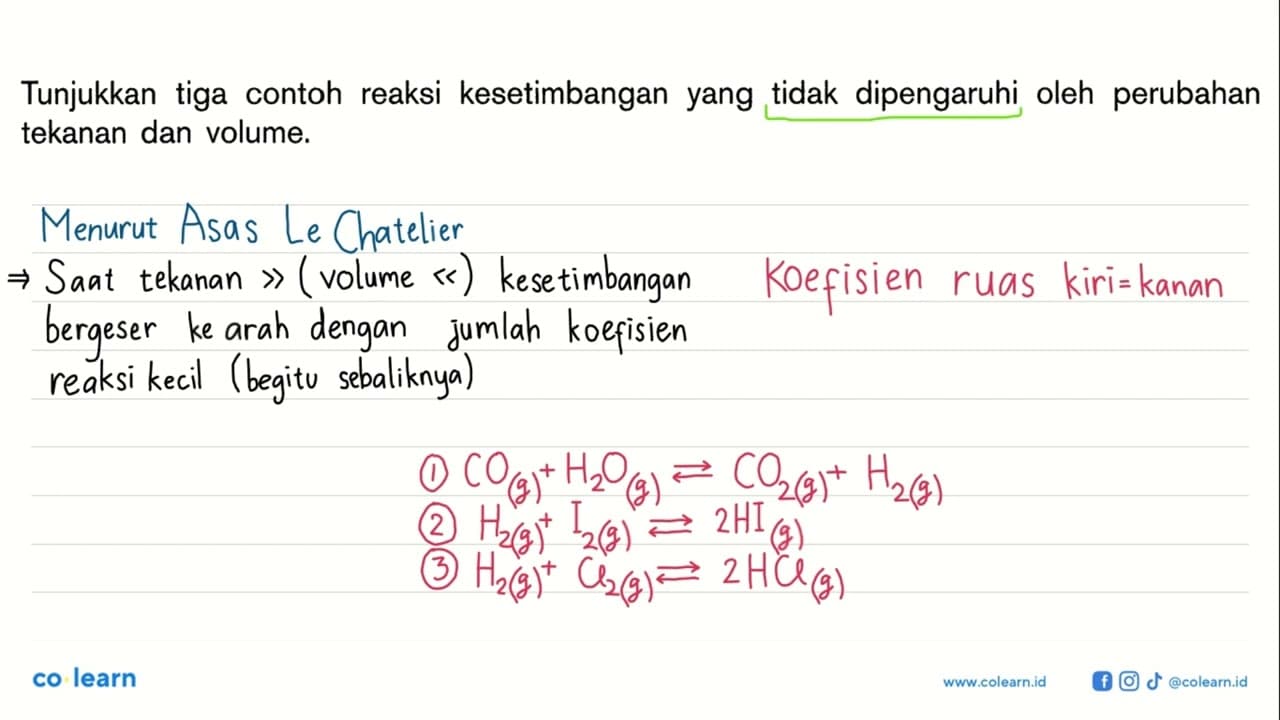 Tunjukkan tiga contoh reaksi kesetimbangan yang tidak dipengaruhi oleh perubahan
tekanan dan volume.
Menurut Asas Le Chatelier
⇒ Saat tekanan >> (volume <<) kesetimbangan
bergeser ke arah dengan jumlah koefisien
reaksi kecil (begitu sebaliknya)
Koefisien ruas kiri = kanan
① CO(g) + H₂O(g) ⇄ CO₂(g) + H₂(g)
② H₂(g) + I₂(g) ⇄ 2HI(g)
③ H₂(g) + Cl₂(g) ⇄ 2HCl(g)
co·learn
www.colearn.id
@colearn.id